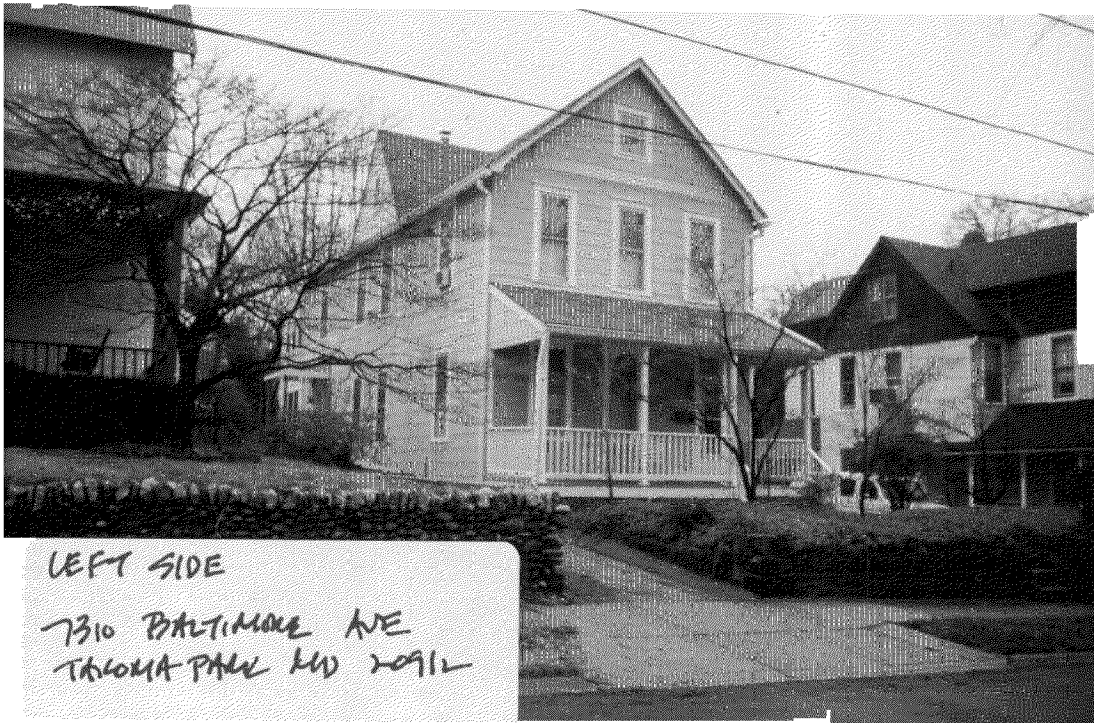 LEFT SIDE
7310 BALTIMORE AVE
TAKOMA PARK MD 20912